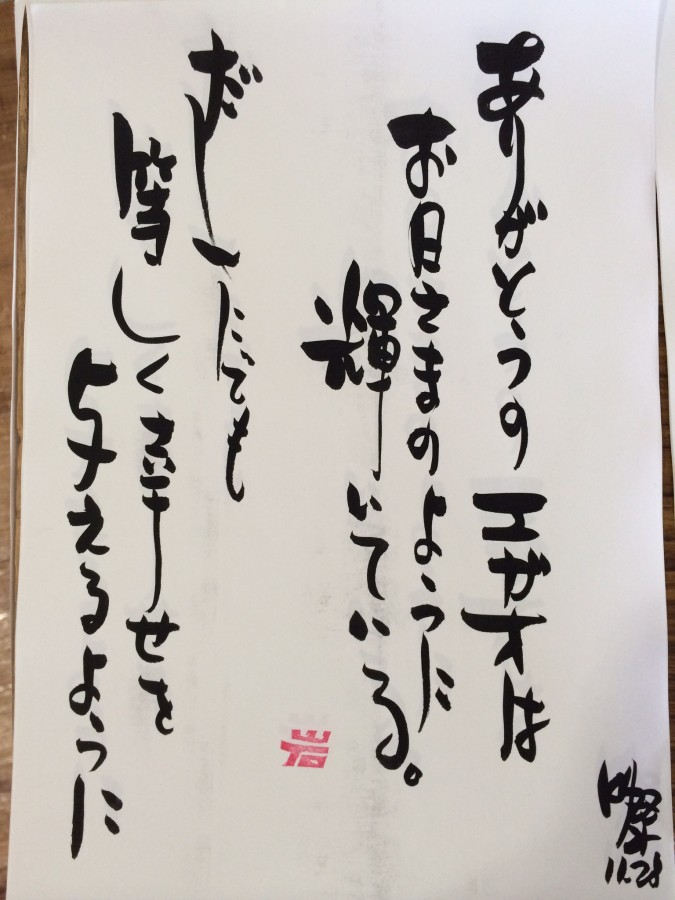 ありがとうの エガオは
お日さまのように
輝いている。
だれにでも
等しく幸せを
与えるように
岩
11.28